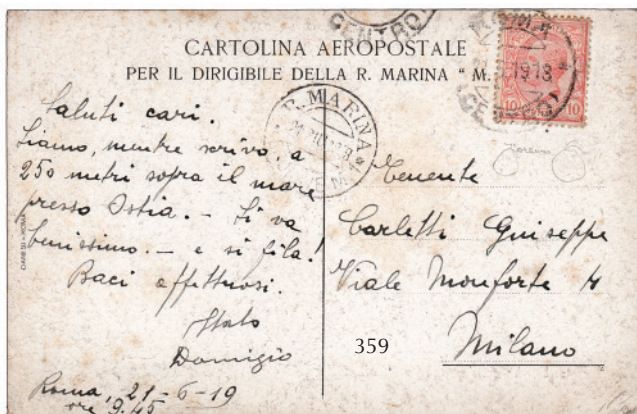 CENTRO
CARTOLINA AEROPOSTALE
PER IL DIRIGIBILE DELLA R. MARINA " M.
10 10
1918
R. MARINA
Saluti cari.
Siamo, mentre scrivo, a
250 metri sopra il mare
presso Ostia. - Si va
benissimo. - e si fila!
Baci affettuosi.
Italo
Domigio
Roma, 21-6-19
ore 9.45
Tenente
Carletti Giuseppe
Viale Monforte 4
Milano
359
DANESI - ROMA